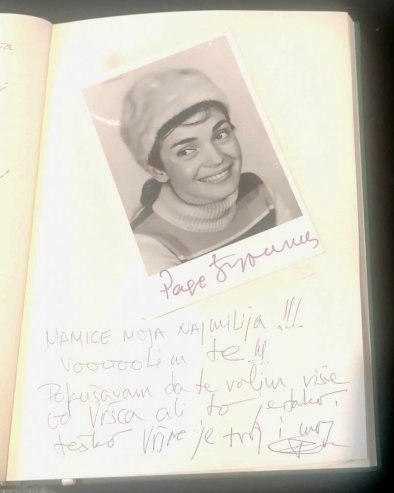 MAMICE MOJA NAJMILIJA !!!
VOOOOOLIM te !!!
Pokušavam da te volim više
od Vršca ali to je tako
teško je tvoj i moj